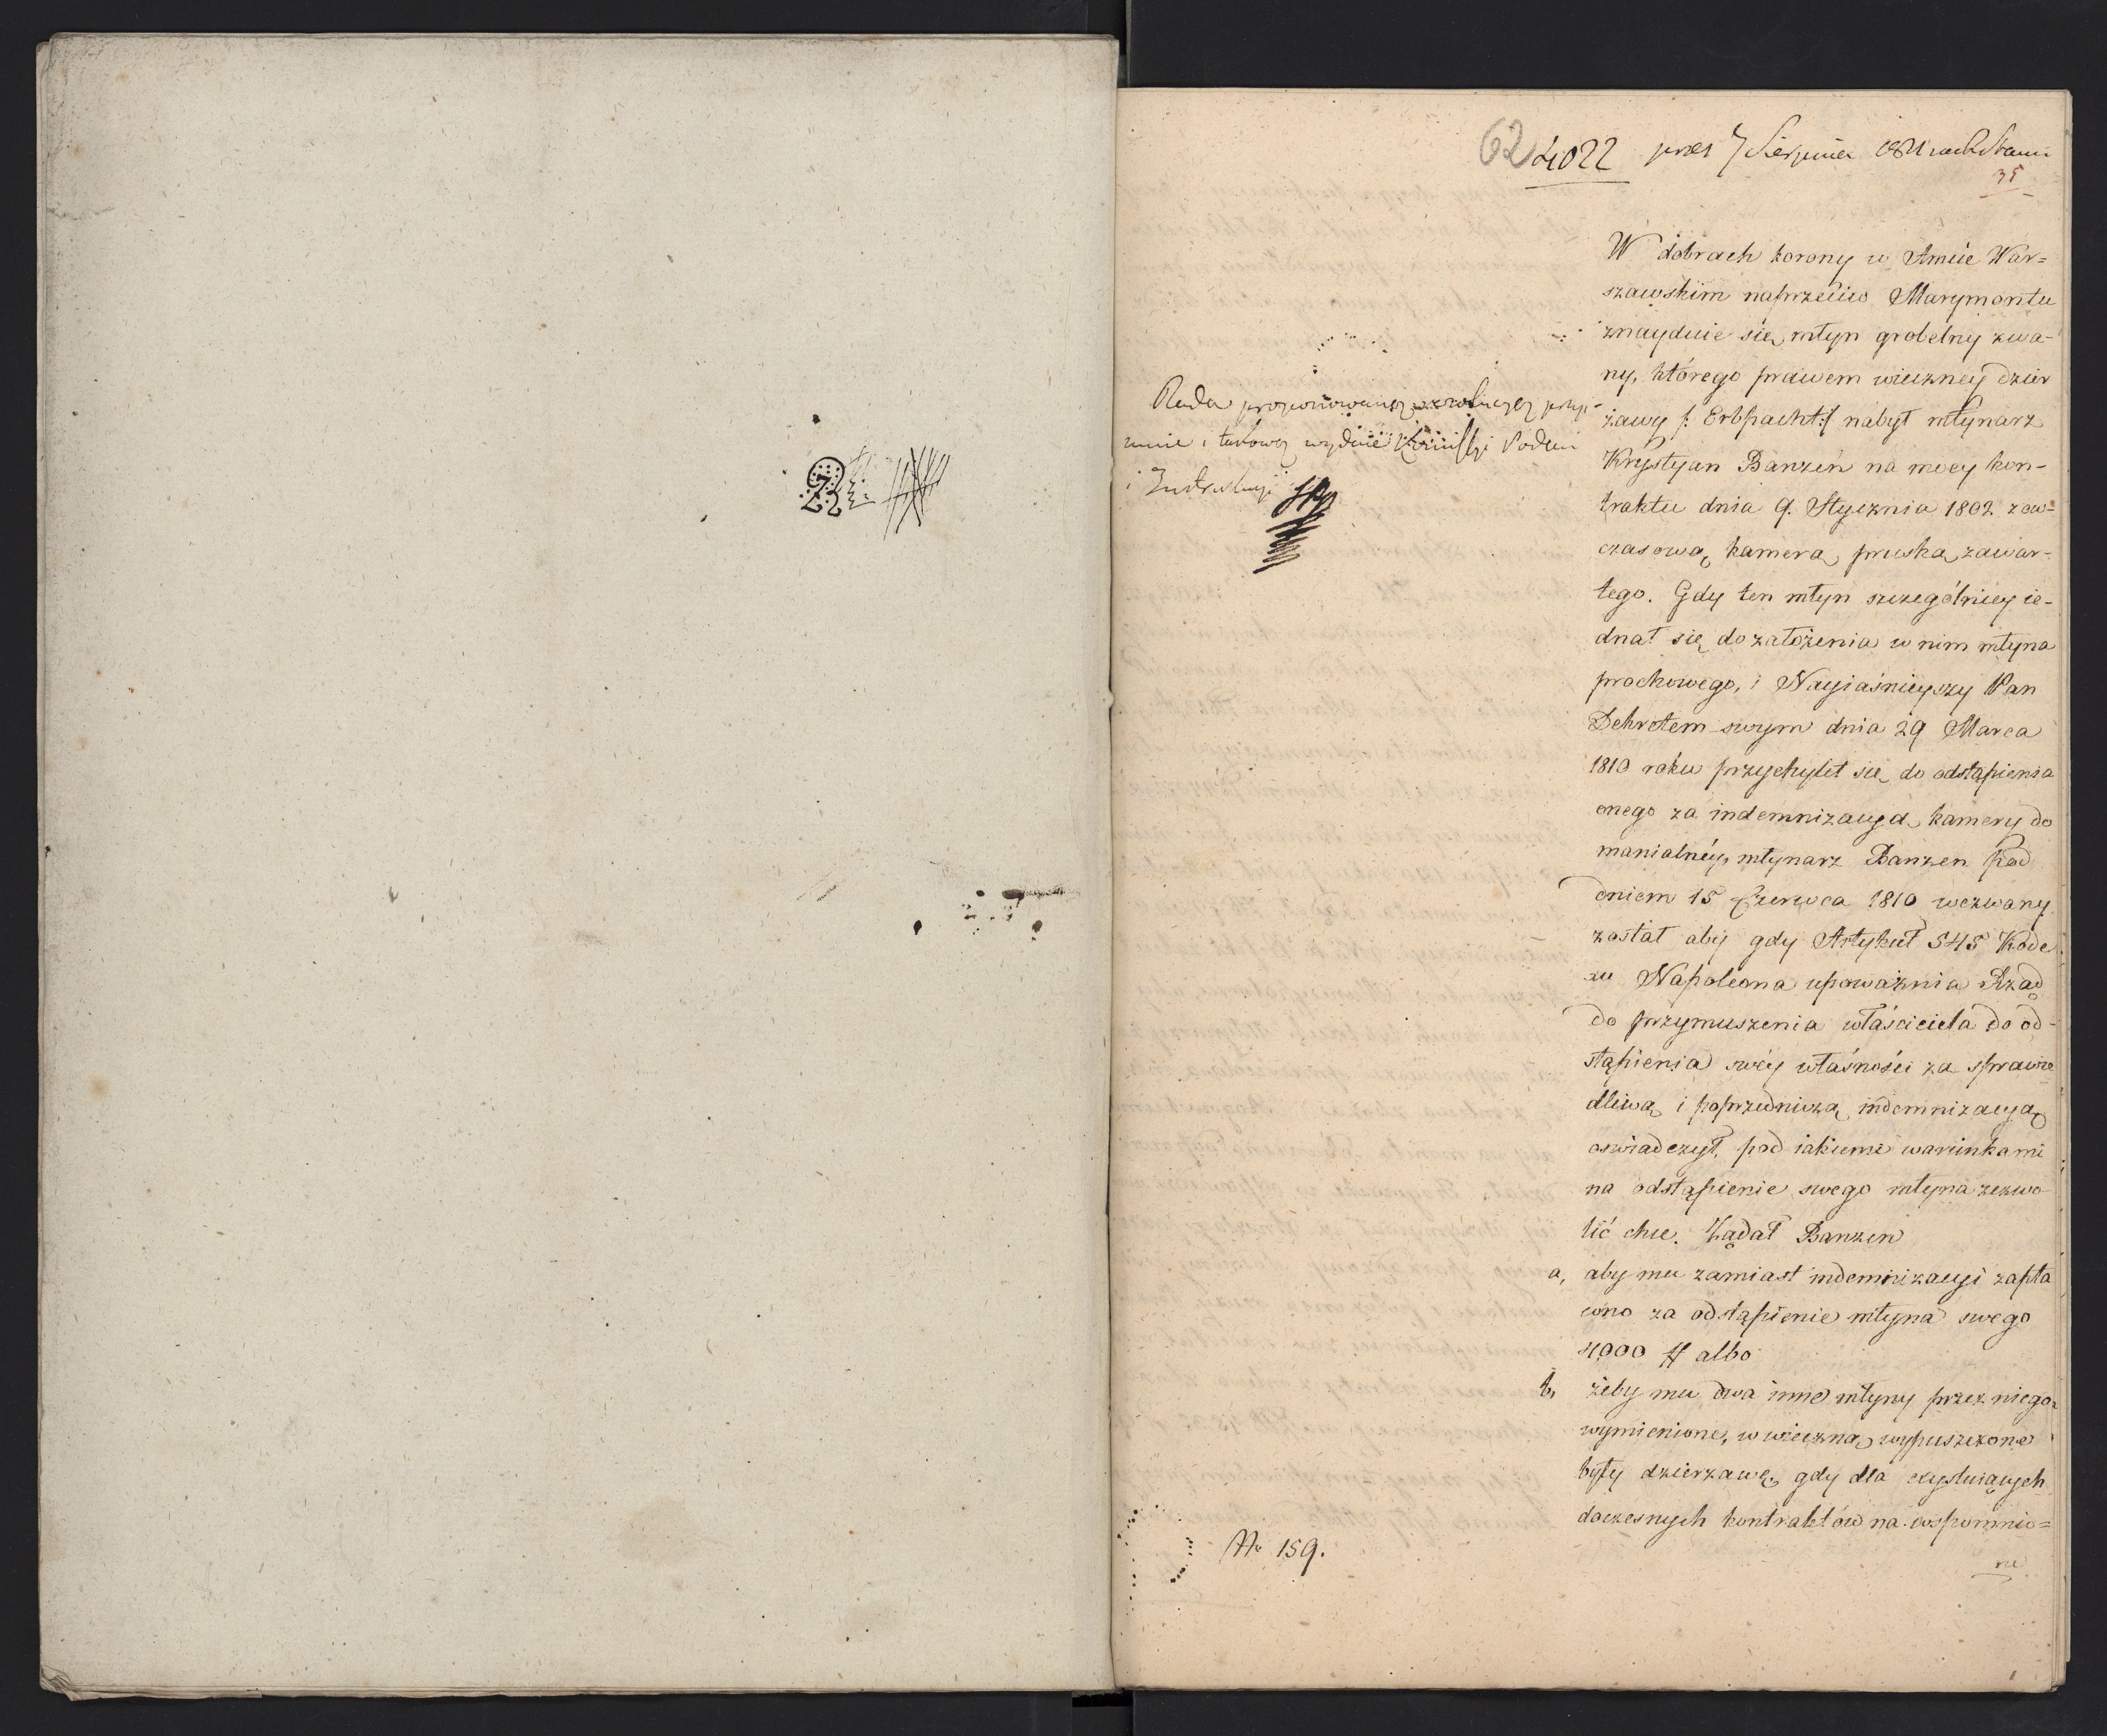 62 4022 prez 7 Sierpnia
35
W dobrach korony w Amcie War=
szawskim naprzeciwo Marymontu
znayduie się młyn grobelny zwa-
ny, którego prawem wieczney dzier
żawy /: Erbpacht :/ nabył młynarz
Krystyan Banzen na mocy kon-
traktu dnia 9. Stycznia 1802 zów=
czasową kamerą pruską zawar-
tego. Gdy ten młyn szczególniey ie-
dnał się do założenia w nim młyna
prochowego, i Nayiaśnieyszy Pan
Dekretem swym dnia 29 Marca
1810 roku przychylił się do odstąpienia
onego za indemnizacyą kamery do
manialnéy, młynarz Banzen pod
dniem 15 Czerwca 1810 wezwany
został aby gdy Artykuł 545 Kode
xu Napoleona upoważnia Rząd
do przymuszenia właściciela do od-
stąpienia swéy własności za sprawie
dliwą i poprzedniczą indemnizacyą
oswiadczył, pod iakiemi warunkami
na odstąpienie swego młyna zezwo
lić chce. Żądał Banzen
a, aby mu zamiast indemnizacyi zapła
cono za odstąpienie młyna swego
4000 # albo
b, żeby mu dwa inne młyny przez niego
wymienione, w wieczną wypuszczone
były dzierzawę, gdy dla exystuiących
doczesnych kontraktów na wspomnio=
ne
Rada proponowaną rezolucyą przyi-
muie i takową wydaie
i Instrukcyi
Nr 159.